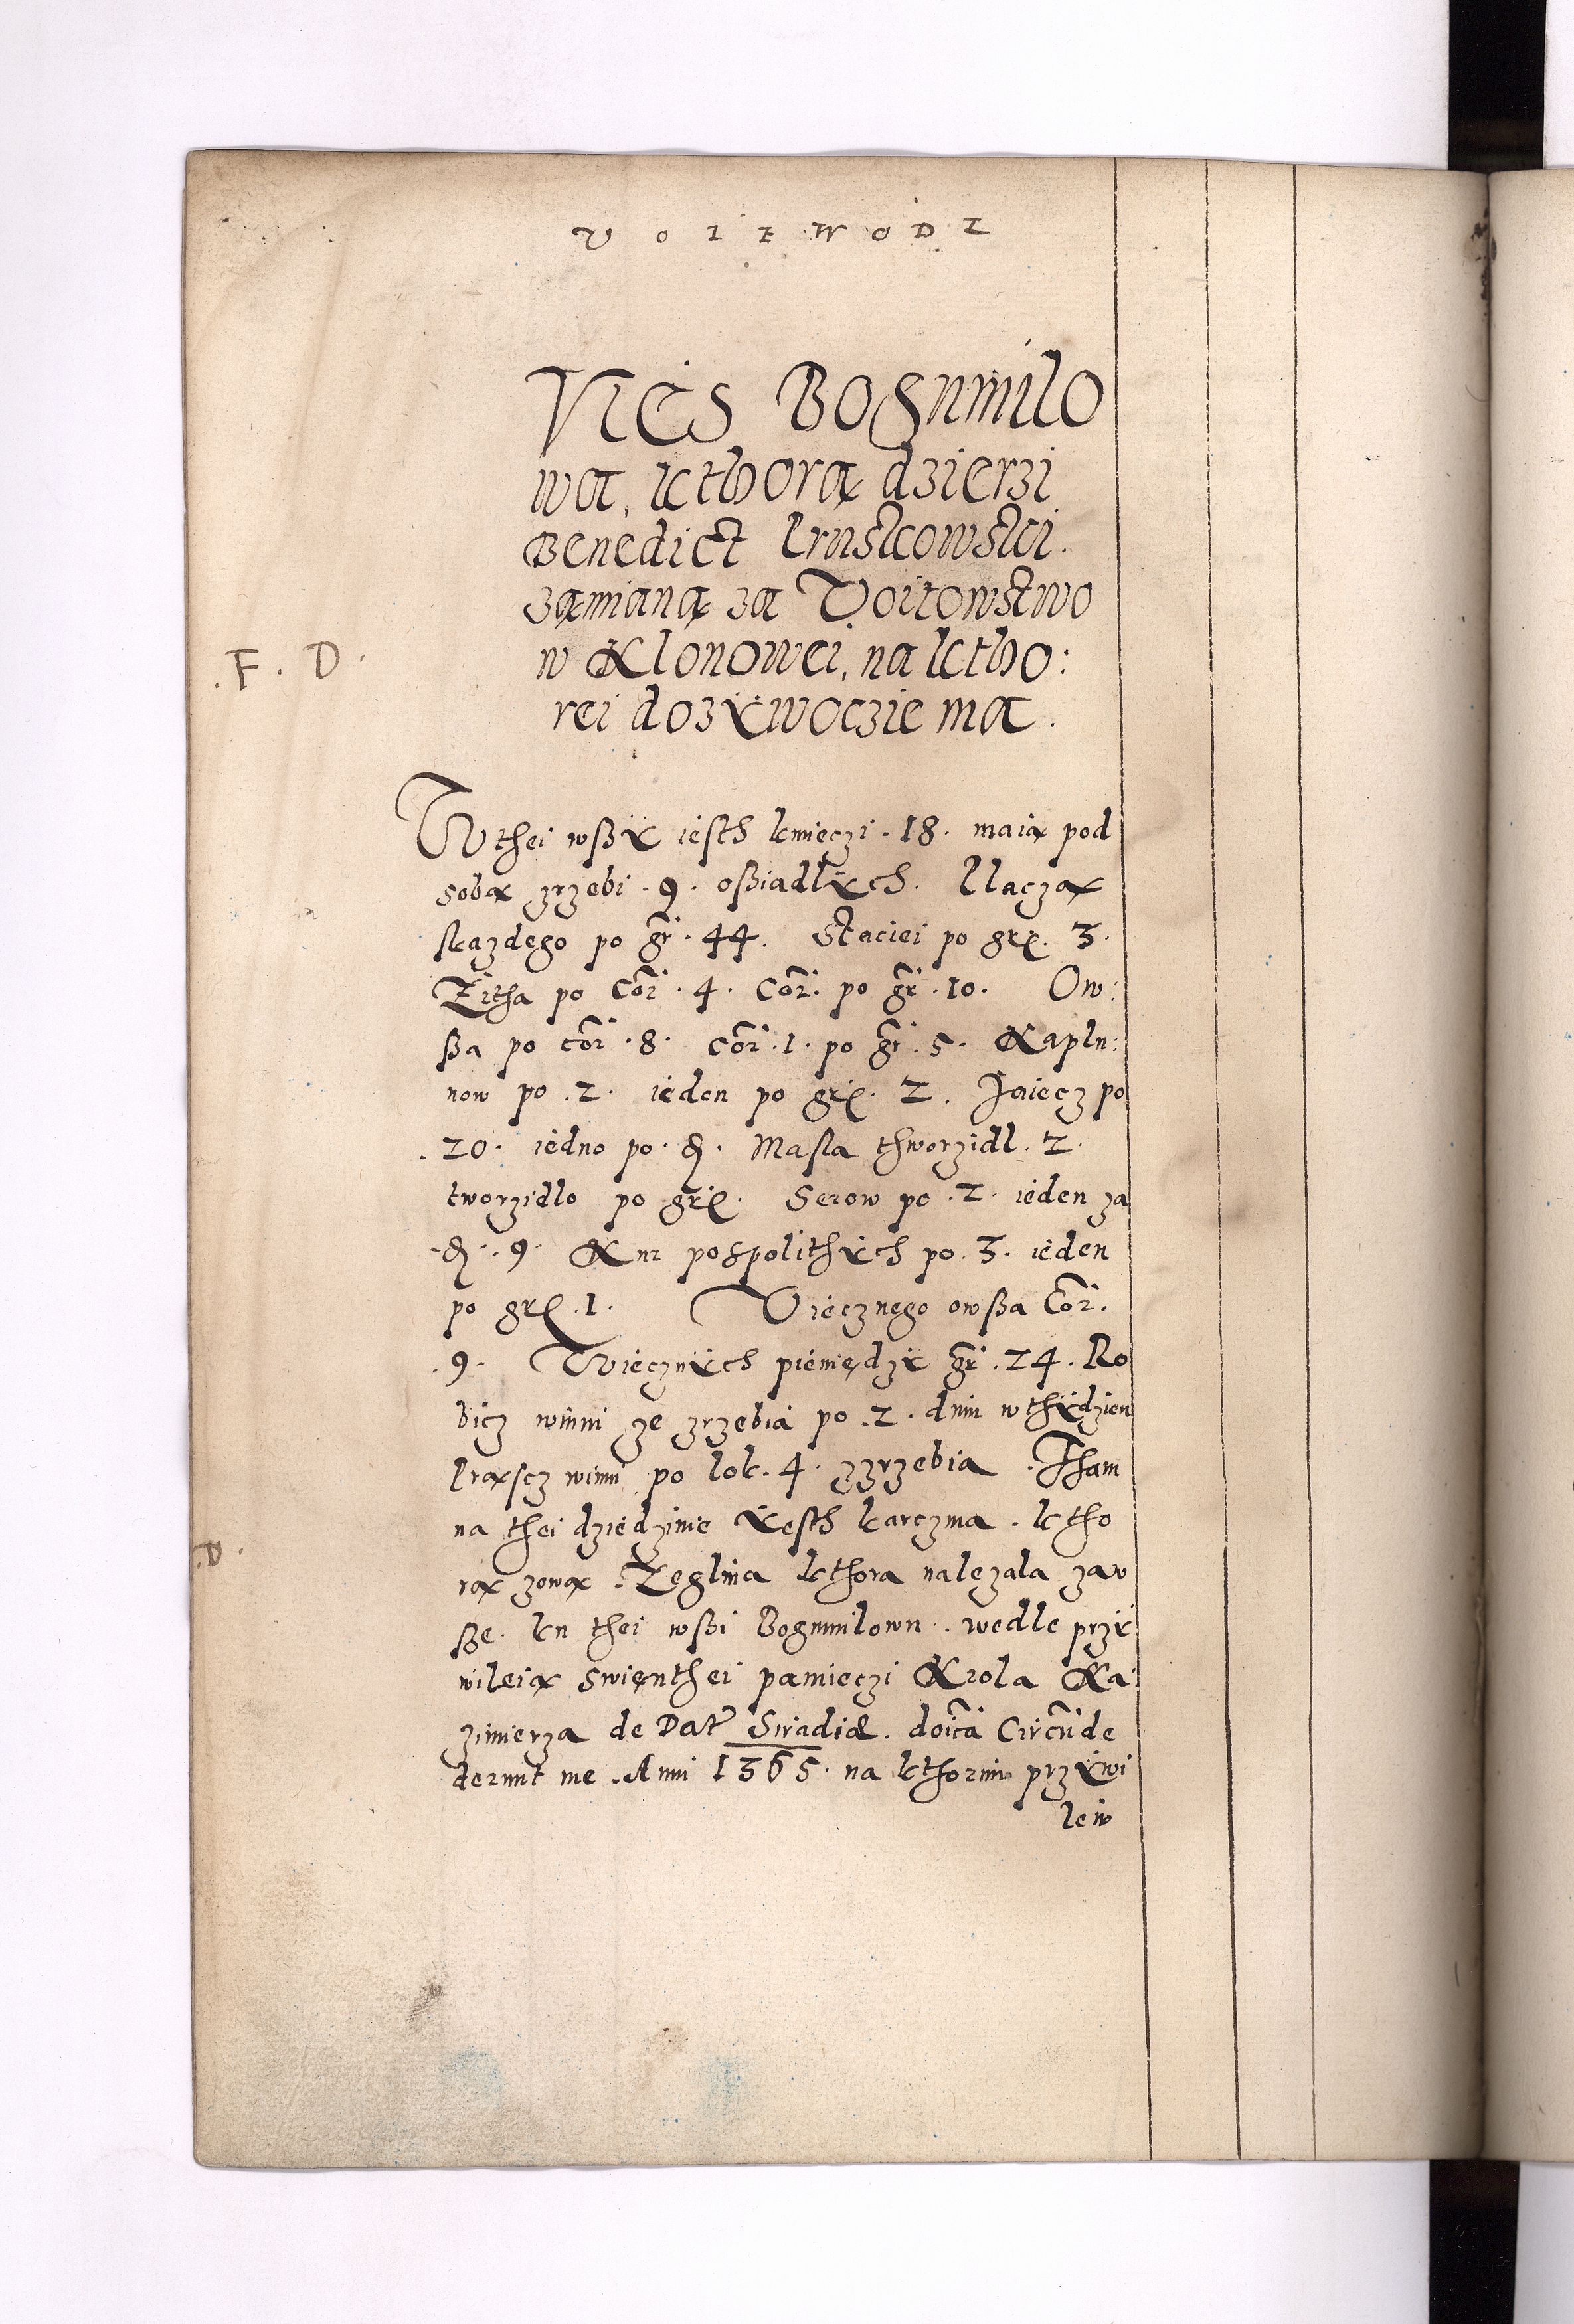 VOIEWODZ
Wies Bogumilo
wa, kthorą dzierzi
Benedict Pruskowski.
zamianą za Voitowstwo
w Klonowei, na ktho:
rei dozÿwoczie ma.
. F . D .
W thei wßÿ iesth kmieczi . 18 . maią pod
sobą zrzebi . 9 . oßiadlÿch. Placzą
skazdego po gr̃ . 44. Staciei po grß. 3.
Zitha po Cor̃ . 4 . Cor̃. po gr̃ . 10. Ow:
ßa po cor̃ . 8 . cor̃ . 1 . po gr̃ . 5. Kaplu:
now po . 2 . ieden po grß. 2. Jaiecz po
. 20 . iedno po . ₰ . Masla thworzidl . 2.
tworzidlo po grß. Serow po . 2 . ieden za
₰ . 9 . Kur pospolithÿch po . 3 . ieden
po grß . 1. Viecznego owßa Cor̃.
. 9 . Wiecznÿch pieniędzÿ gr̃ . 24 . Ro
bicz winni ze zrzebia po . 2 . dnni w thÿdzien
Prąscz winni po lok . 4 . zzrzebia . Tham
na thei dziedzinie ÿesth karczma . ktho
D.
rą zową . Zeglina kthora nalezala zaw
ße . ku thei wßi Bogumilowu . wedle przÿ
wileią swięnthei pamieczi Krola Ka:
zimierza de Dat Siradiæ . doĩca Circũde
derunt me . Anni 1365 . na kthorim przÿwi
leiu